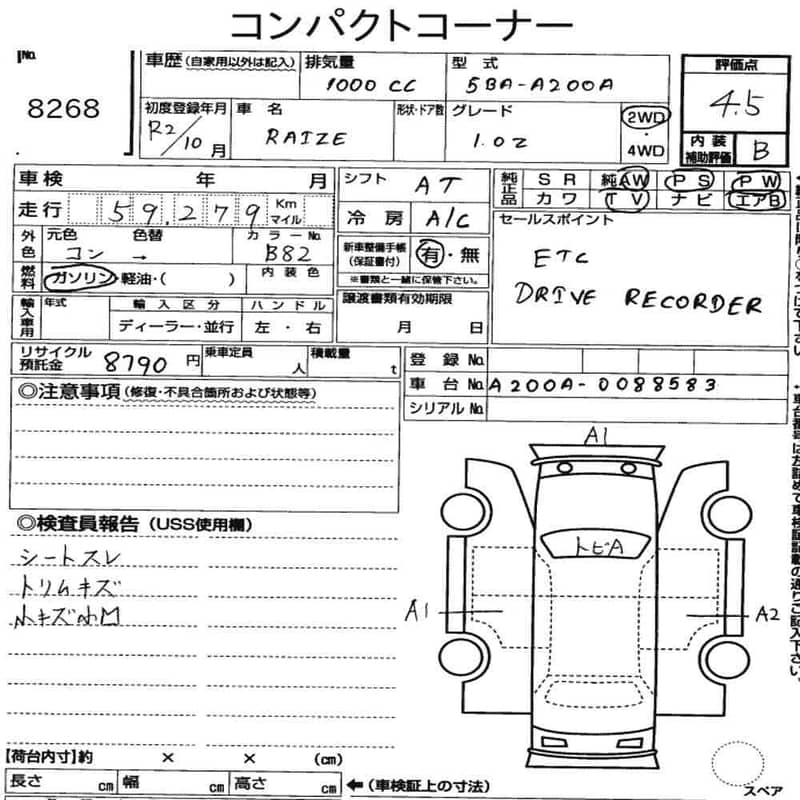 コンパクトコーナー
No.
8268
車歴(自家用以外は記入) 排気量 型 式 評価点
1000 CC 5BA-A200A 4.5
初度登録年月 車 名 形状・ドア数 グレード 2WD・4WD
R2/10月 RAIZE 1.0Z
内装補助評価 B
車 検 年 月 シフト AT 純正品 SR 純AW PS PW
カワ TV ナビ エアB
走行 59,279 Km マイル 冷 房 A/C セールスポイント
外色 元色 色替 カラーNo.
コン → B82
新車整備手帳(保証書付) 有・無
ETC
※書類と一緒に保管下さい。
燃料 ガソリン・軽油・( ) 内 装 色
DRIVE RECORDER
輸入車用 年式 輸 入 区 分 ハ ン ド ル 譲渡書類有効期限
ディーラー・並行 左 ・ 右 月 日
リサイクル預託金 8790 円 乗車定員 人 積載量 t 登 録 No.
車 台 No. A200A-0088583
シリアル No.
◎注意事項(修復・不具合箇所および状態等)
◎検査員報告(USS使用欄)
シートスレ
トリムキズ
小キズ小凹
A1
トビA
A1
A2
スペア
【荷台内寸】約 × × (cm)
長さ cm 幅 cm 高さ cm ←(車検証上の寸法)